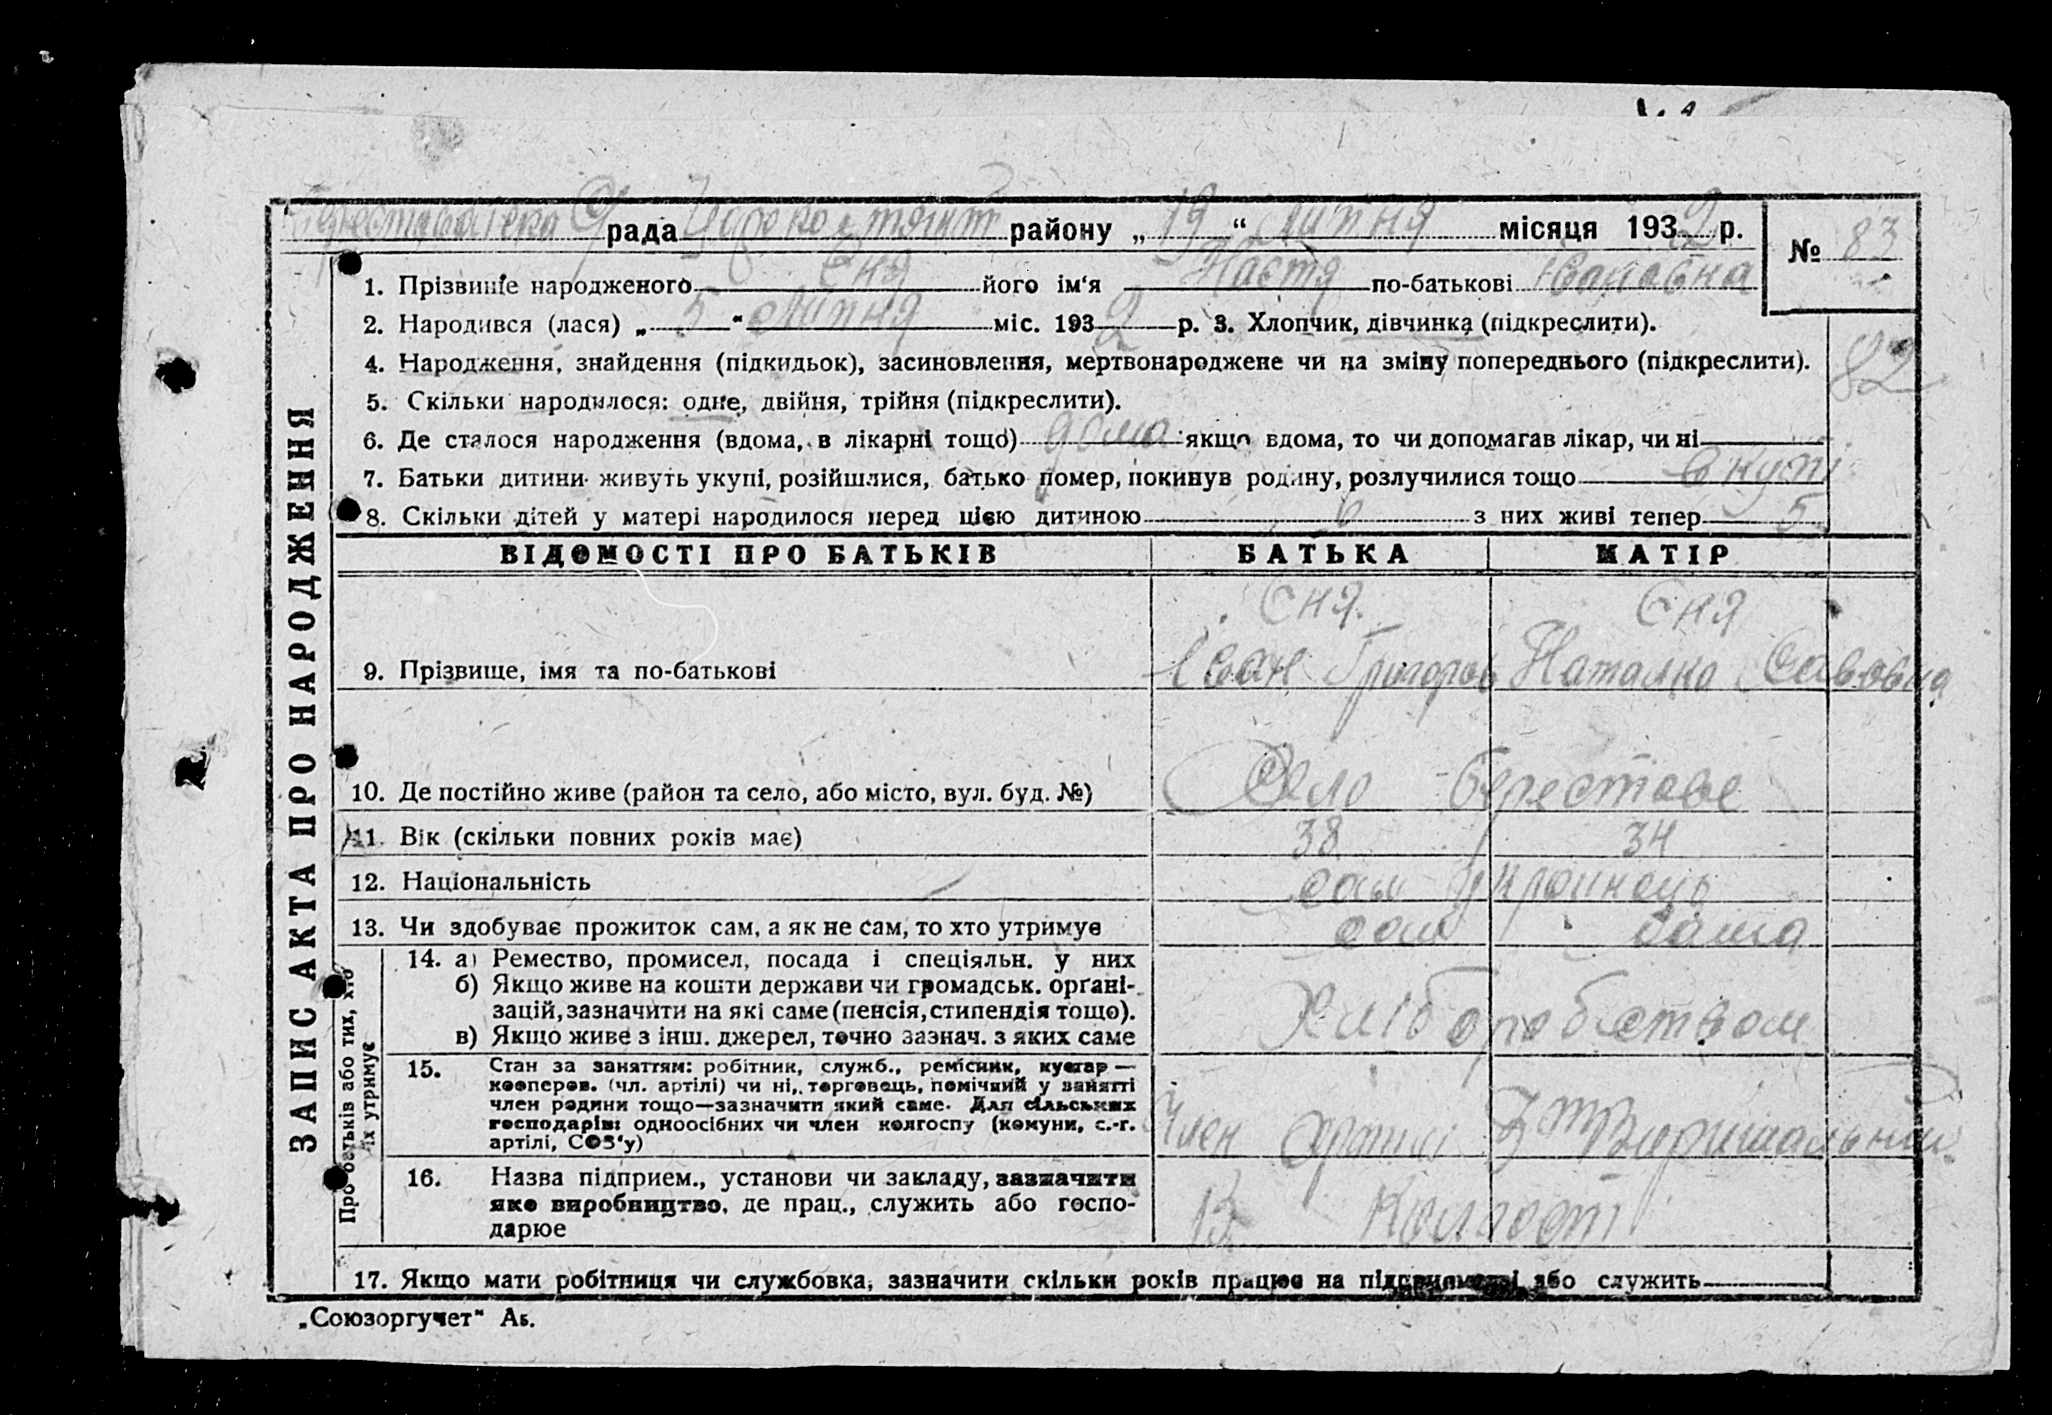 рада району „ 19 “ липня місяця 1932 р. № 83
1. Прізвище народженого Єня його ім‘я Настя по-батькові Івановна
2. Народився (лася) „ 5 “ липня міс. 1932 р. 3. Хлопчик, дівчинка (підкреслити).
4. Народження, знайдення (підкидьок), засиновлення, мертвонароджене чи на зміну попереднього (підкреслити).
82
5. Скільки народилося: одне, двійня, трійня (підкреслити).
6. Де сталося народження (вдома, в лікарні тощо) дома якщо вдома, то чи допомагав лікар, чи ні
7. Батьки дитини живуть укупі, розійшлися, батько помер, покинув родину, розлучилися тощо вкупі
8. Скільки дітей у матері народилося перед цією дитиною 6 з них живі тепер 5
ЗАПИС АКТА ПРО НАРОДЖЕННЯ
ВІДОМОСТІ ПРО БАТЬКІВ БАТЬКА МАТІР
Єня Єня
9. Прізвище, імя та по-батькові Іван Григоров Наталка Савовна
10. Де постійно живе (район та село, або місто, вул. буд. №) Село Берестове
11. Вік (скільки повних років має) 38 34
12. Національність Українець
13. Чи здобуває прожиток сам, а як не сам, то хто утримує сам сама
Про батьків або тих, хто
їх утримує
14. а) Ремество, промисел, посада і спеціяльн. у них
б) Якщо живе на кошти держави чи громадськ. орґані-
зацій, зазначити на які саме (пенсія, стипендія тощо).
в) Якщо живе з інш. джерел, точно зазнач. з яких саме
Хліборобством
15. Стан за заняттям: робітник, служб., ремісник, кустар —
кооперов. (чл. артілі) чи ні, торговець, помічний у занятті
член родини тощо—зазначити який саме. Для сільських
господарів: одноосібних чи член колгоспу (комуни, с.-г.
артілі, СОЗ‘у)
Член Артілі 3тй Вирішальний
16. Назва підприєм., установи чи закладу, зазначити
яке виробництво, де прац., служить або госпо-
дарює
В Колгоспі
17. Якщо мати робітниця чи службовка, зазначити скільки років працює на підприємстві або служить
„Союзоргучет“ Аб.